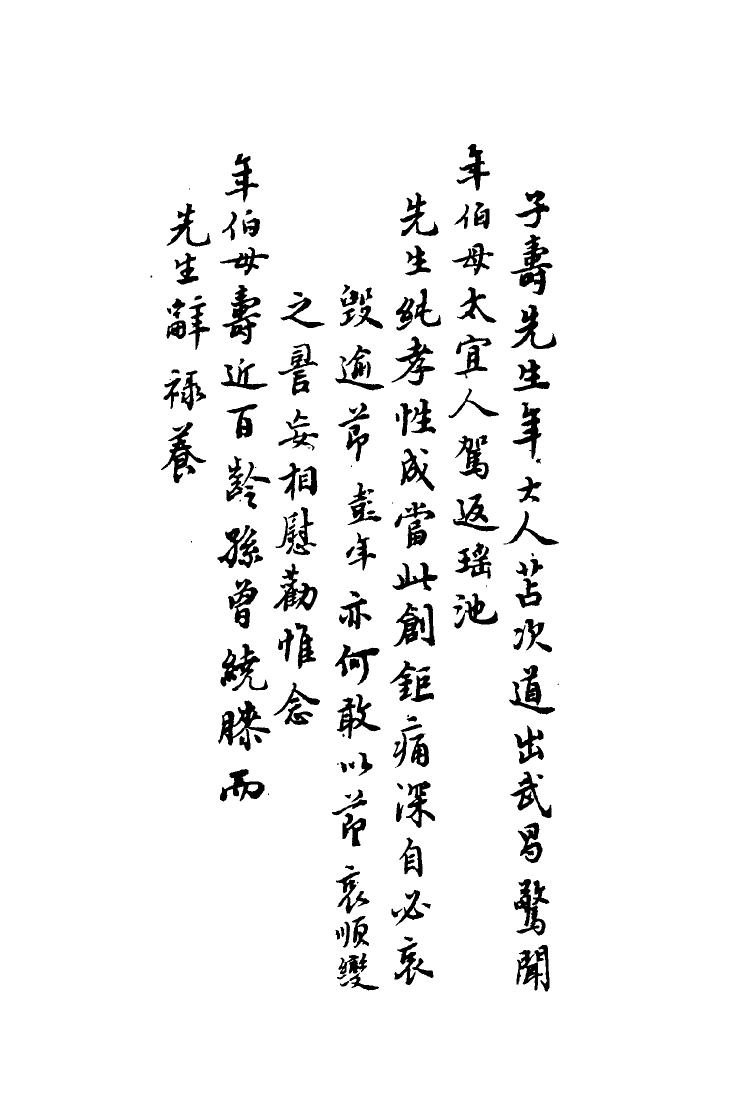 子壽先生年大人苫次道出武昌驚聞
年伯母太宜人駕返瑤池
先生純孝性成當此創鉅痛深自必哀
毀逾節壴年亦何敢以節哀順變
之詈妄相慰勸惟念
年伯母壽近百齡孫曾繞膝而
先生辭祿養